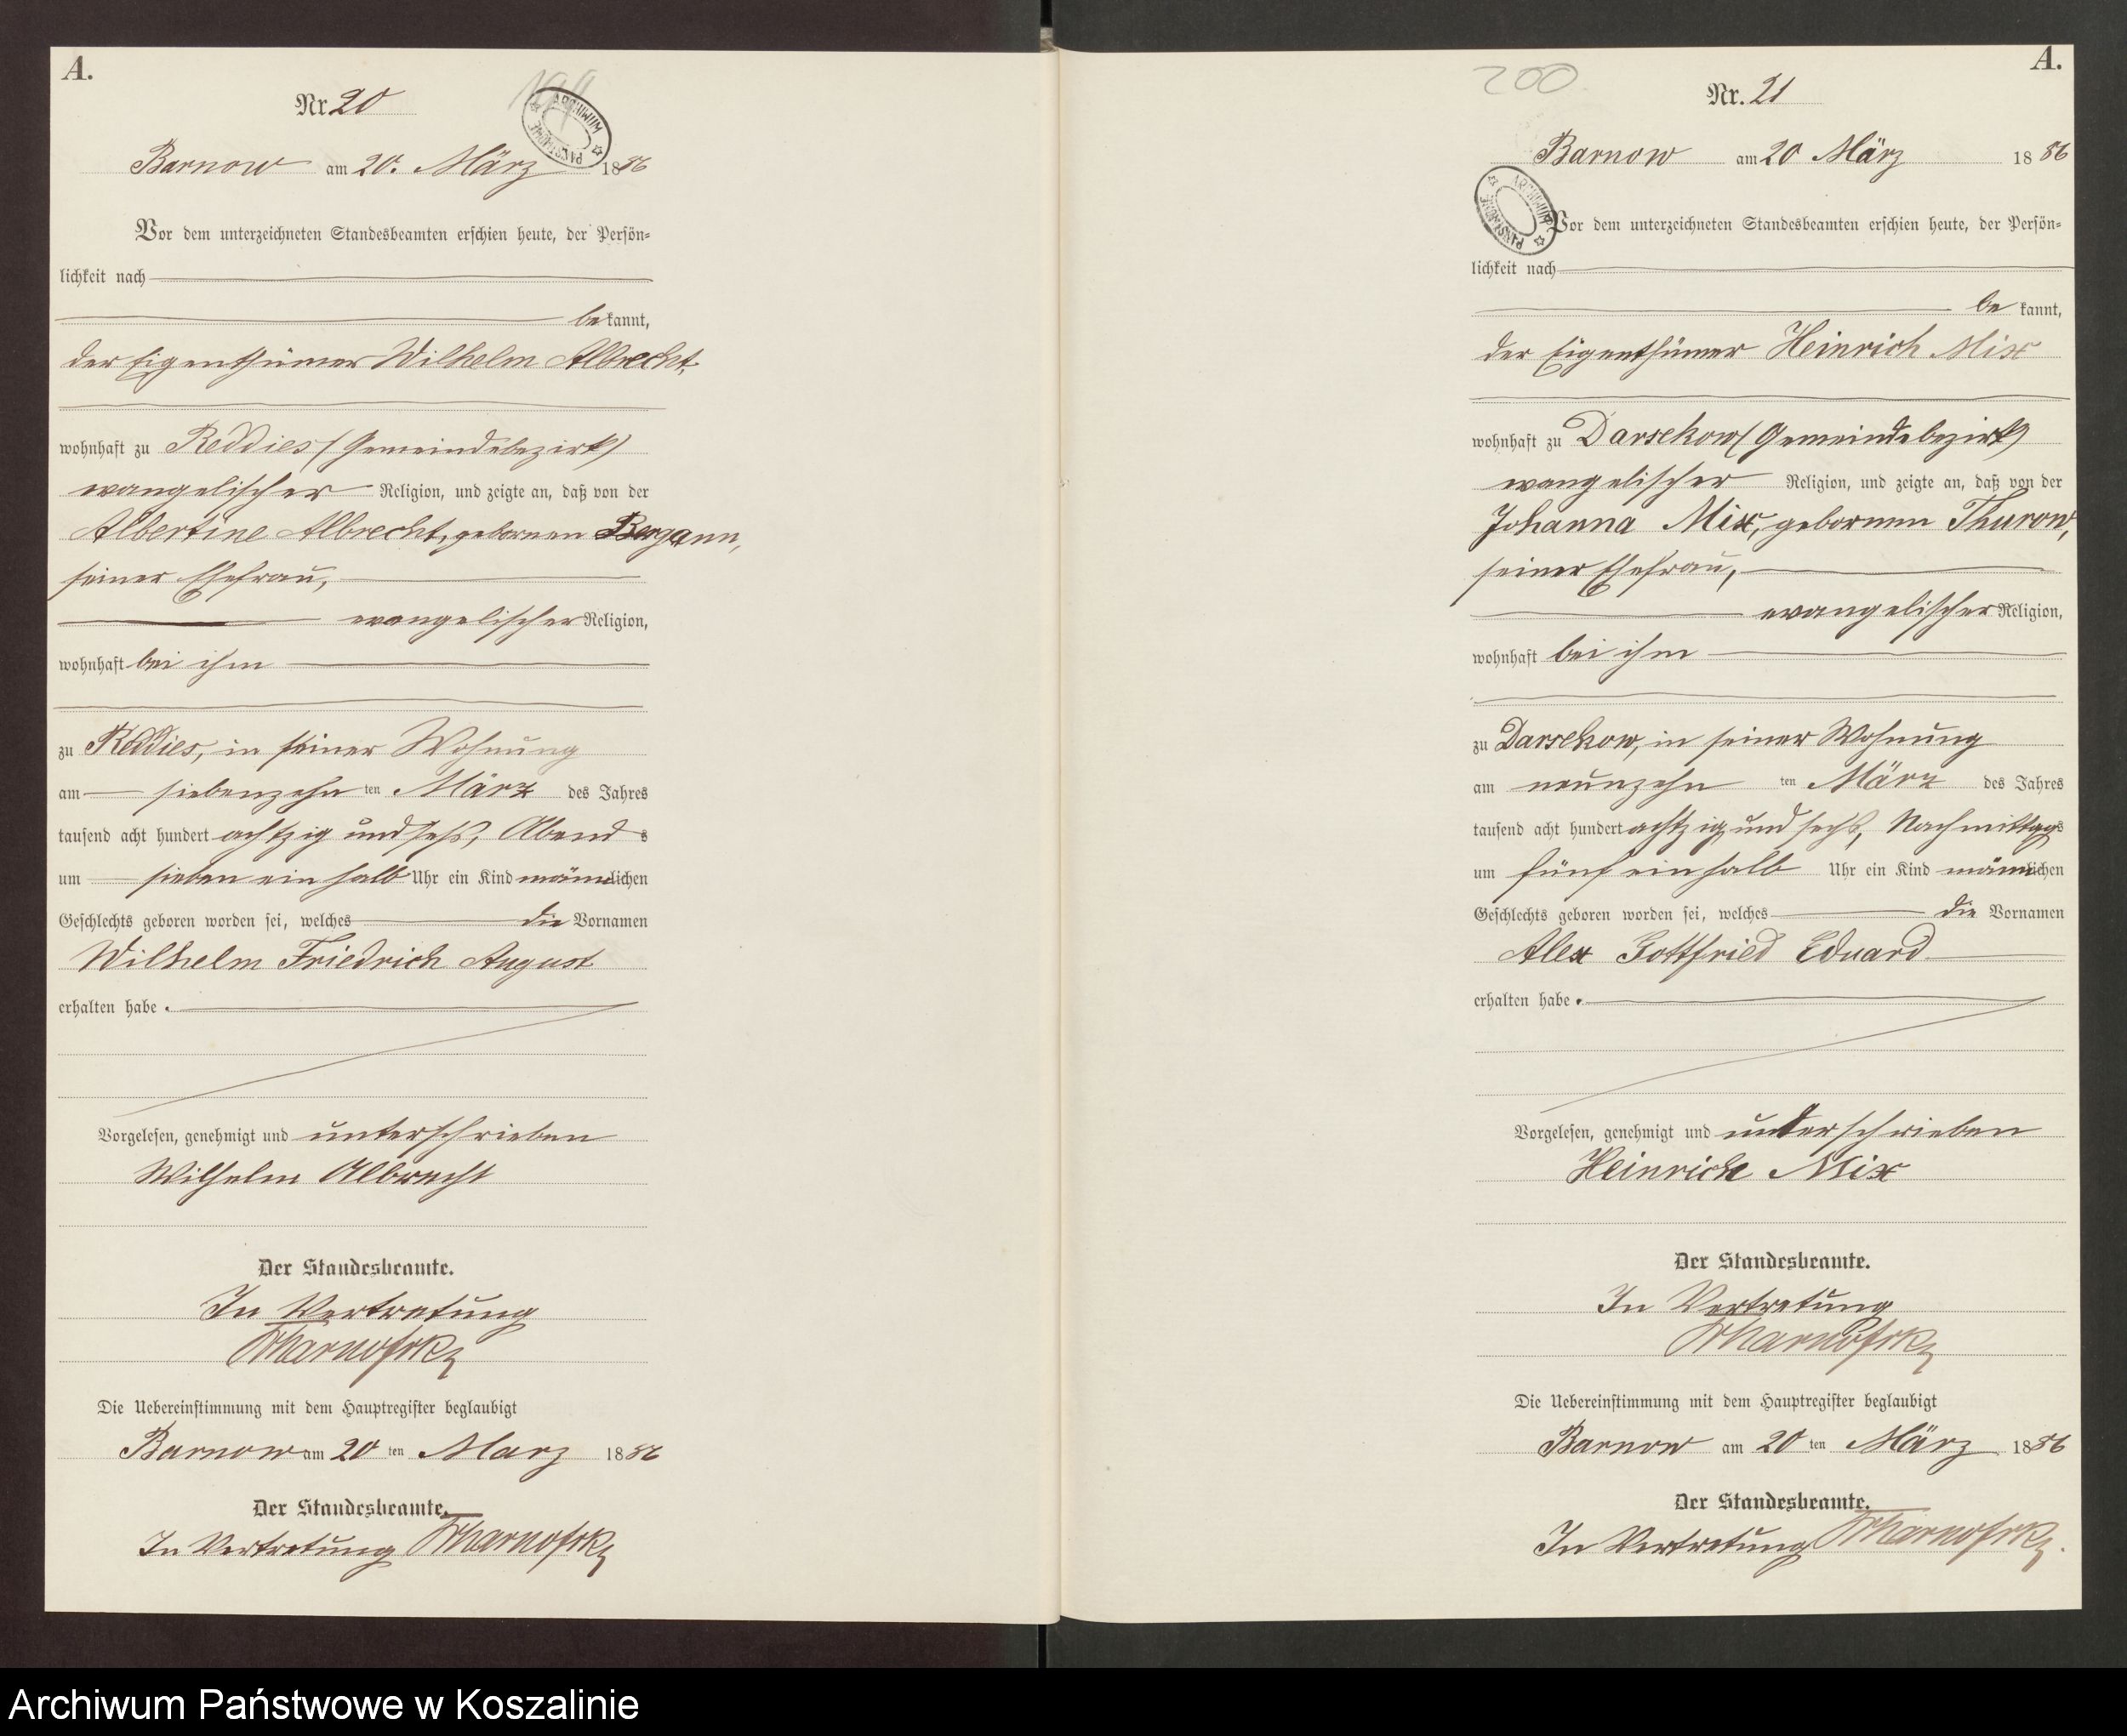 A.
Nr 20
199
ARCHIWUM PAŃSTWOWE
Barnow am 20. März 1886
Vor dem unterzeichneten Standesbeamten erschien heute, der Persön-
lichkeit nach
bekannt,
der Eigenthümer Wilhelm Albrecht,
wohnhaft zu Reddies (Gemeindebezirk)
evangelischer Religion, und zeigte an, daß von der
Albertine Albrecht, gebornen Bergann,
seiner Ehefrau,
evangelischer Religion,
wohnhaft bei ihm
zu Reddies, in seiner Wohnung
am siebenzehn ten März des Jahres
tausend acht hundert achtzig und sechs, Abends
um sieben ein halb Uhr ein Kind männlichen
Geschlechts geboren worden sei, welches die Vornamen
Wilhelm Friedrich August
erhalten habe.
Vorgelesen, genehmigt und unterschrieben
Wilhelm Albrecht
Der Standesbeamte.
In Vertretung
Die Uebereinstimmung mit dem Hauptregister beglaubigt
Barnow am 20 ten Marz 1886
Der Standesbeamte.
In Vertretung
A.
200
Nr. 21
Barnow am 20 März 1886
ARCHIWUM PAŃSTWOWE
Vor dem unterzeichneten Standesbeamten erschien heute, der Persön-
lichkeit nach
be kannt,
der Eigenthümer Heinrich Mix
wohnhaft zu Darsekow (Gemeindebezirk)
evangelischer Religion, und zeigte an, daß von der
Johanna Mix, gebornen Thurow,
seiner Ehefrau,
evangelischer Religion,
wohnhaft bei ihm
zu Darsekow, in seiner Wohnung
am neunzehn ten März des Jahres
tausend acht hundert achtzig und sechs, Nachmittags
um fünf ein halb Uhr ein Kind männlichen
Geschlechts geboren worden sei, welches die Vornamen
Alex Gottfried Eduard
erhalten habe.
Vorgelesen, genehmigt und unterschrieben
Heinrich Mix
Der Standesbeamte.
In Vertretung
Die Uebereinstimmung mit dem Hauptregister beglaubigt
Barnow am 20 ten März 1886
Der Standesbeamte.
In Vertretung
Archiwum Państwowe w Koszalinie